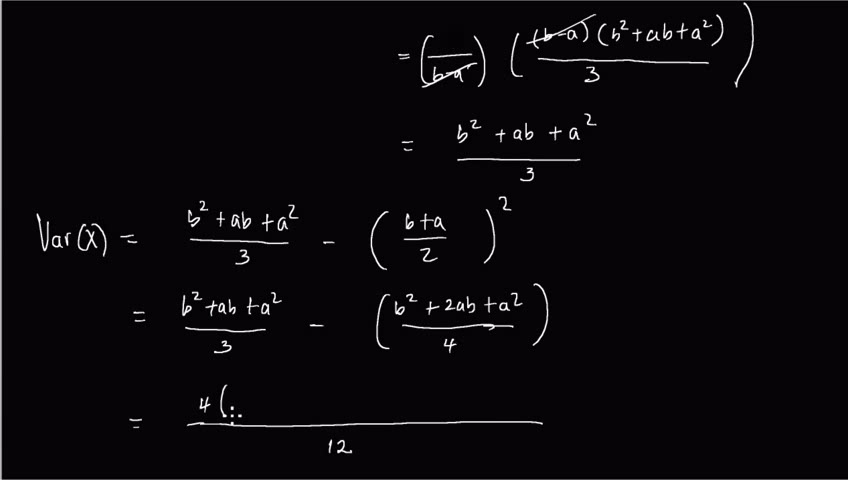 = (1/(b-a)) ((b-a)(b²+ab+a²)/3)
= (b²+ab+a²)/3
Var(X) = (b²+ab+a²)/3 - ((b+a)/2)²
= (b²+ab+a²)/3 - ((b²+2ab+a²)/4)
= 4(/12